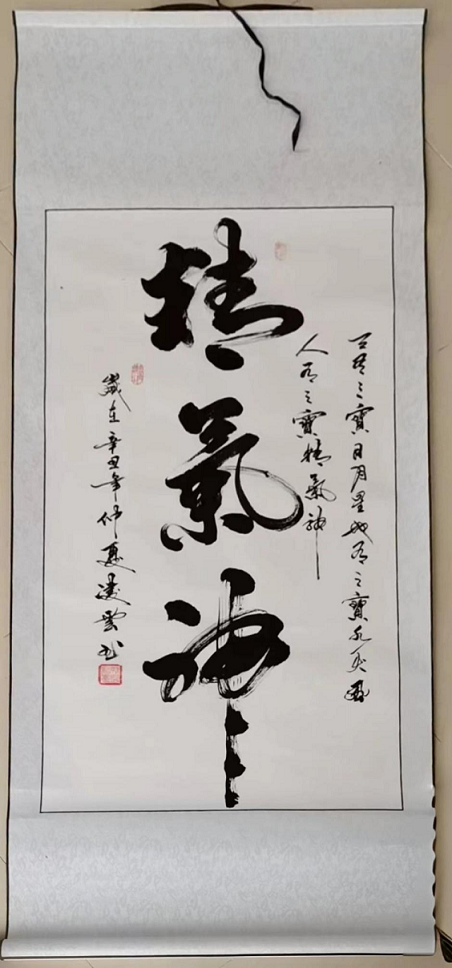 天有三寶日月星地有三寶水火風
人有三寶精氣神
精氣神
歲在辛丑年仲夏凌雲书